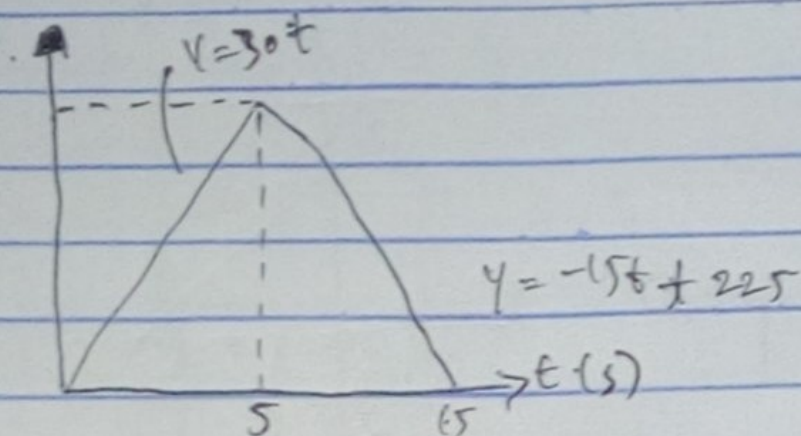 V=30t
y = -15t + 225
t(s)
5
15